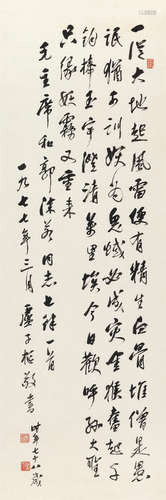 一从大地起风雷便有精生白骨堆僧是愚
氓犹可训妖为鬼蜮必成灾金猴奋起千
钧棒玉宇澄清万里埃今日欢呼孙大圣
只缘妖雾又重来
毛主席和郭沫若同志七律一首
一九七七年三月
敬书
时年七十八岁